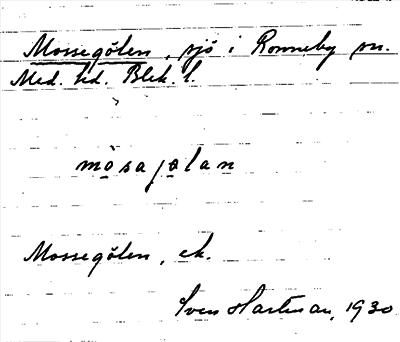 Mossegölen, sjö i Ronneby sn.
Med. hd. Blek. l.
mòsajølan
Mossegölen, ek.
Sven Hartman, 1930